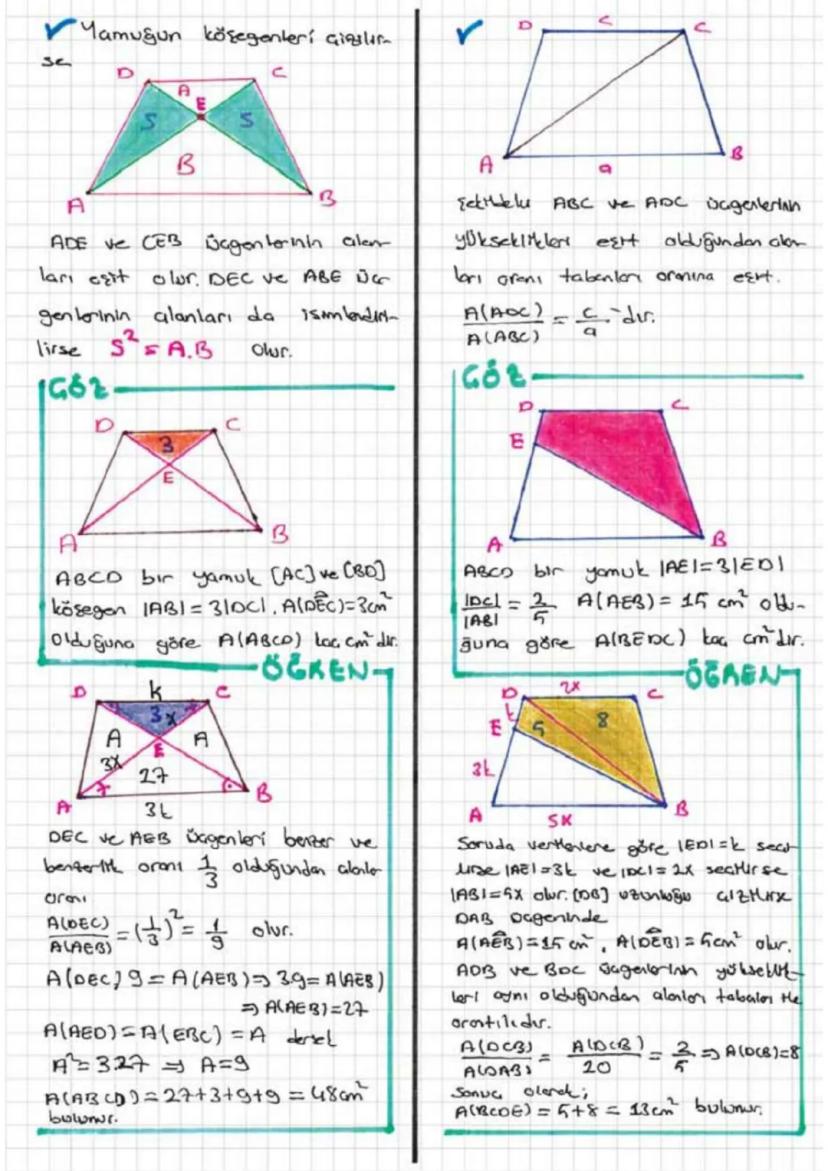 ✓ Yamuğun köşegenleri çizilir-
se
D C
A
E
S S
B
A B
ADE ve CEB üçgenlerinin alan-
ları eşit olur. DEC ve ABE üç-
genlerinin alanları da isimlendiri-
lirse S² = A.B olur.
GÖZ
D C
3
E
A B
ABCD bir yamuk [AC] ve [BD]
köşegen |AB| = 3|DC|, A(DEC)=3cm²
olduğuna göre A(ABCD) kaç cm² dir.
ÖĞREN
D k C
3x
A E A
3x
27
A B
3k
DEC ve AEB üçgenleri benzer ve
benzerlik oranı 1/3 olduğundan alanlar
oranı
A(DEC)/A(AEB) = (1/3)² = 1/9 olur.
A(DEC) 9 = A(AEB) ⇒ 3.9 = A(AEB)
⇒ A(AEB) = 27
A(AED) = A(EBC) = A dersek
A² = 3.27 ⇒ A = 9
A(ABCD) = 27+3+9+9 = 48cm²
bulunur.
✓
D c C
A a B
Şekildeki ABC ve ADC üçgenlerinin
yükseklikleri eşit olduğundan alan-
ları oranı tabanları oranına eşit.
A(ADC)/A(ABC) = c/a 'dır.
GÖZ
D C
E
A B
ABCD bir yamuk |AE|=3|ED|
|DC|/|AB| = 2/5 A(AEB) = 15 cm² oldu-
ğuna göre A(BEDC) kaç cm² dir.
ÖĞREN
D 2x C
k
E 5 8
3k
A B
5x
Soruda verilenlere göre |ED|=k seçi-
lirse |AE|=3k ve |DC|=2x seçilirse
|AB|=5x olur. [DB] uzunluğu çizilirse
DAB üçgeninde
A(AEB)=15 cm², A(DEB)=5cm² olur.
ADB ve BDC üçgenlerinin yükseklik-
leri aynı olduğundan alanları tabanlar ile
orantılıdır.
A(DCB)/A(DAB) = A(DCB)/20 = 2/5 ⇒ A(DCB)=8
Sonuç olarak;
A(BCDE) = 5+8 = 13cm² bulunur.